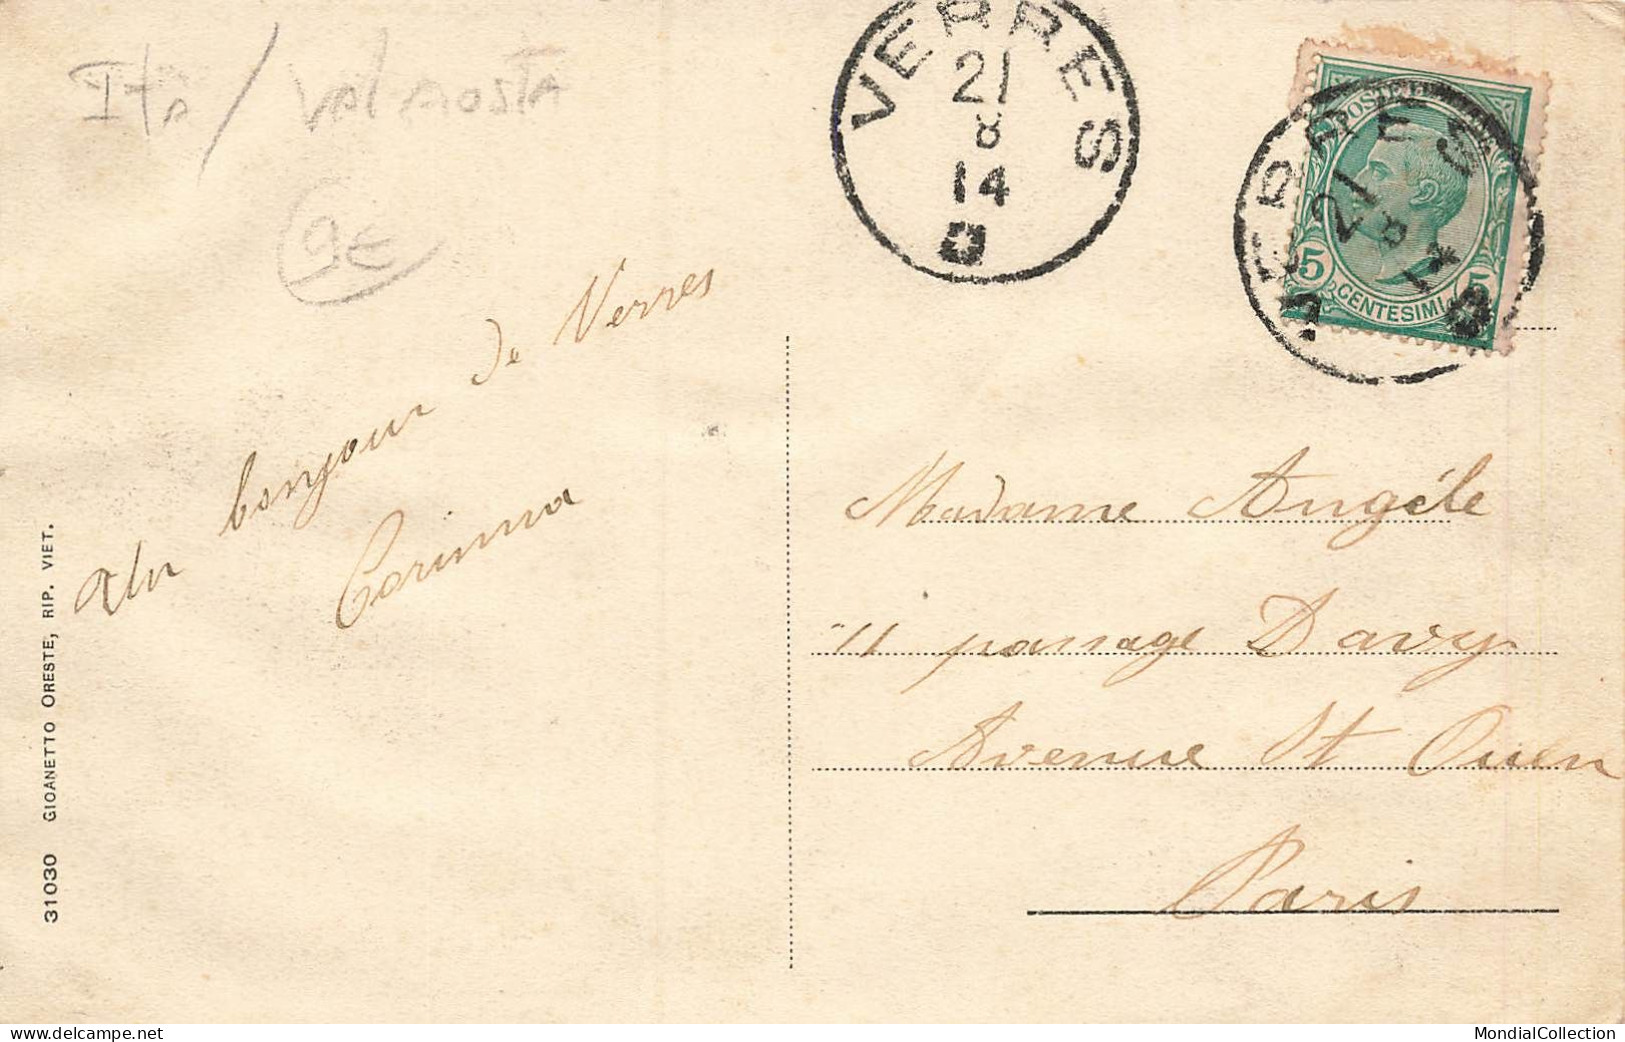 Ita / Val Aosta
9€
VERRES
21
8
14
POSTE ITALIANE
5 CENTESIMI 5
VERRES
21
8
14
Un bonjour de Verres
Corinna
Madame Angéle
11 passage Davy
Avenue St Ouen
Paris
31030 GIOANETTO ORESTE, RIP. VIET.
delcampe.net
MondialCollection